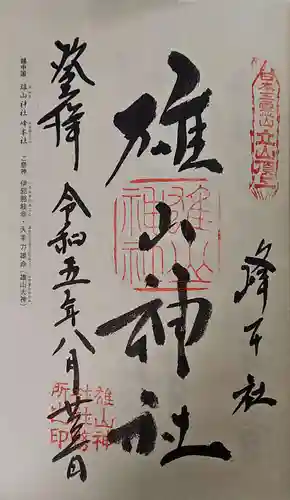 日本三霊山立山頂上
峰本社
雄山神社
雄山神社
登拝
令和五年八月廿五日
雄山神社社務所之印
越中國 雄山神社峰本社 ご祭神 伊邪那岐命・天手力雄命(雄山大神)